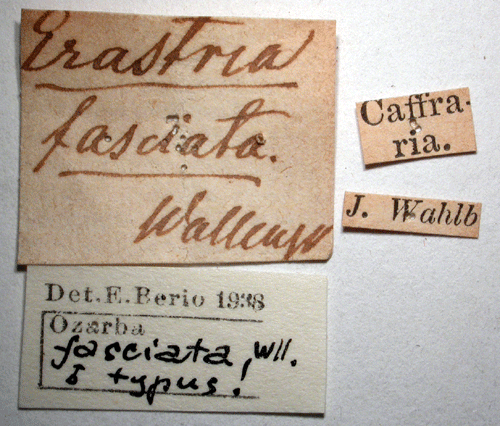 Erastria
fasciata.
Wallengr
Caffra-
ria.
J. Wahlb
Det. E. Berio 1938
Ozarba
fasciata, Wll.
♂ typus!